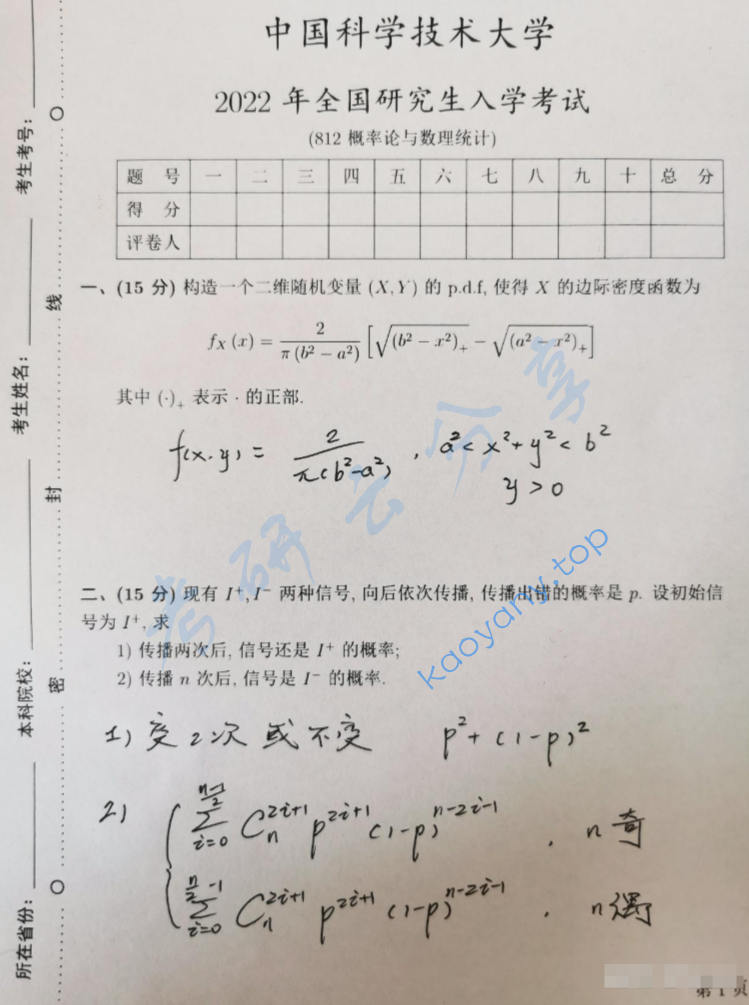 中国科学技术大学
2022 年全国研究生入学考试
(812 概率论与数理统计)
题 号 一 二 三 四 五 六 七 八 九 十 总 分
得 分
评卷人
一、(15 分) 构造一个二维随机变量 (X, Y) 的 p.d.f, 使得 X 的边际密度函数为
f_X (x) = \frac{2}{π (b² − a²)} [√((b² − x²)₊) − √((a² − x²)₊)]
其中 (·)₊ 表示 · 的正部.
f(x,y) = \frac{2}{π(b²-a²)} , a² < x² + y² < b²
y > 0
二、(15 分) 现有 I⁺, I⁻ 两种信号, 向后依次传播, 传播出错的概率是 p. 设初始信
号为 I⁺, 求
1) 传播两次后, 信号还是 I⁺ 的概率;
2) 传播 n 次后, 信号是 I⁻ 的概率.
1) 变 2 次 或 不变 p² + (1-p)²
2) { \sum_{i=0}^{\frac{n-1}{2}} C_n^{2i+1} p^{2i+1} (1-p)^{n-2i-1} , n 奇
\sum_{i=0}^{\frac{n}{2}-1} C_n^{2i+1} p^{2i+1} (1-p)^{n-2i-1} , n 偶
第 1 页
考生考号:
考生姓名:
本科院校:
所在省份:
线
封
密
考研云分享
kaoyany.top